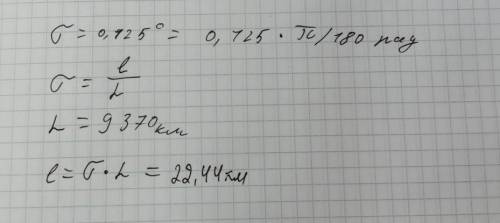 σ = 0,125° = 0,125 · π/180 рад
σ = l/L
L = 9370км
l = σ·L = 22,44км